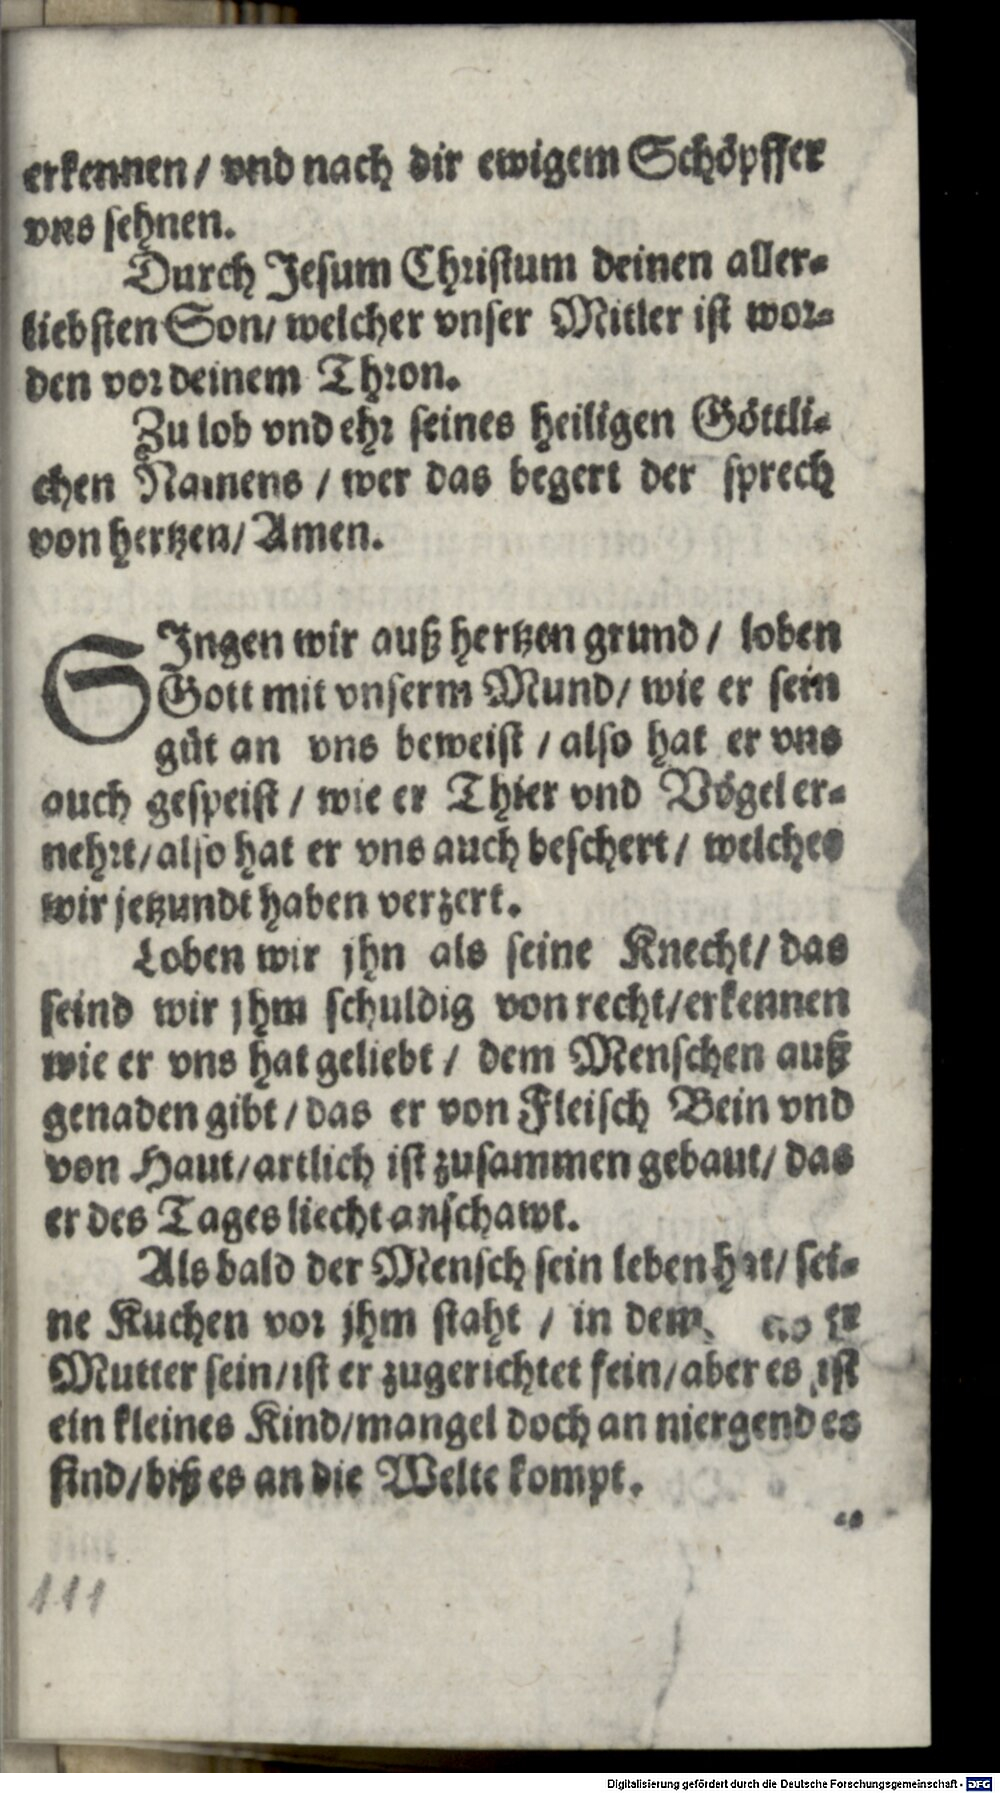 erkennen / vnd nach dir ewigem Schöpffer
vns sehnen.
Durch Jesum Christum deinen aller-
liebsten Son / welcher vnser Mitler ist wor-
den vor deinem Thron.
Zu lob vnd ehr seines heiligen Göttli-
chen Namens / wer das begert der sprech
von hertzen / Amen.
SIngen wir auß hertzen grund / loben
Gott mit vnserm Mund / wie er sein
güt an vns beweist / also hat er vns
auch gespeist / wie er Thier vnd Vögel er-
nehrt / also hat er vns auch beschert / welches
wir jetzundt haben verzert.
Loben wir jhn als seine Knecht / das
seind wir jhm schuldig von recht / erkennen
wie er vns hat geliebt / dem Menschen auß
genaden gibt / das er von Fleisch Bein vnd
von Haut / artlich ist zusammen gebaut / das
er des Tages liecht anschawt.
Als bald der Mensch sein leben hat / sei-
ne Kuchen vor jhm staht / in dem er
Mutter sein / ist er zugerichtet fein / aber es ist
ein kleines Kind / mangel doch an niergend es
find / biß es an die Welte kompt.
111
Digitalisierung gefördert durch die Deutsche Forschungsgemeinschaft - DFG